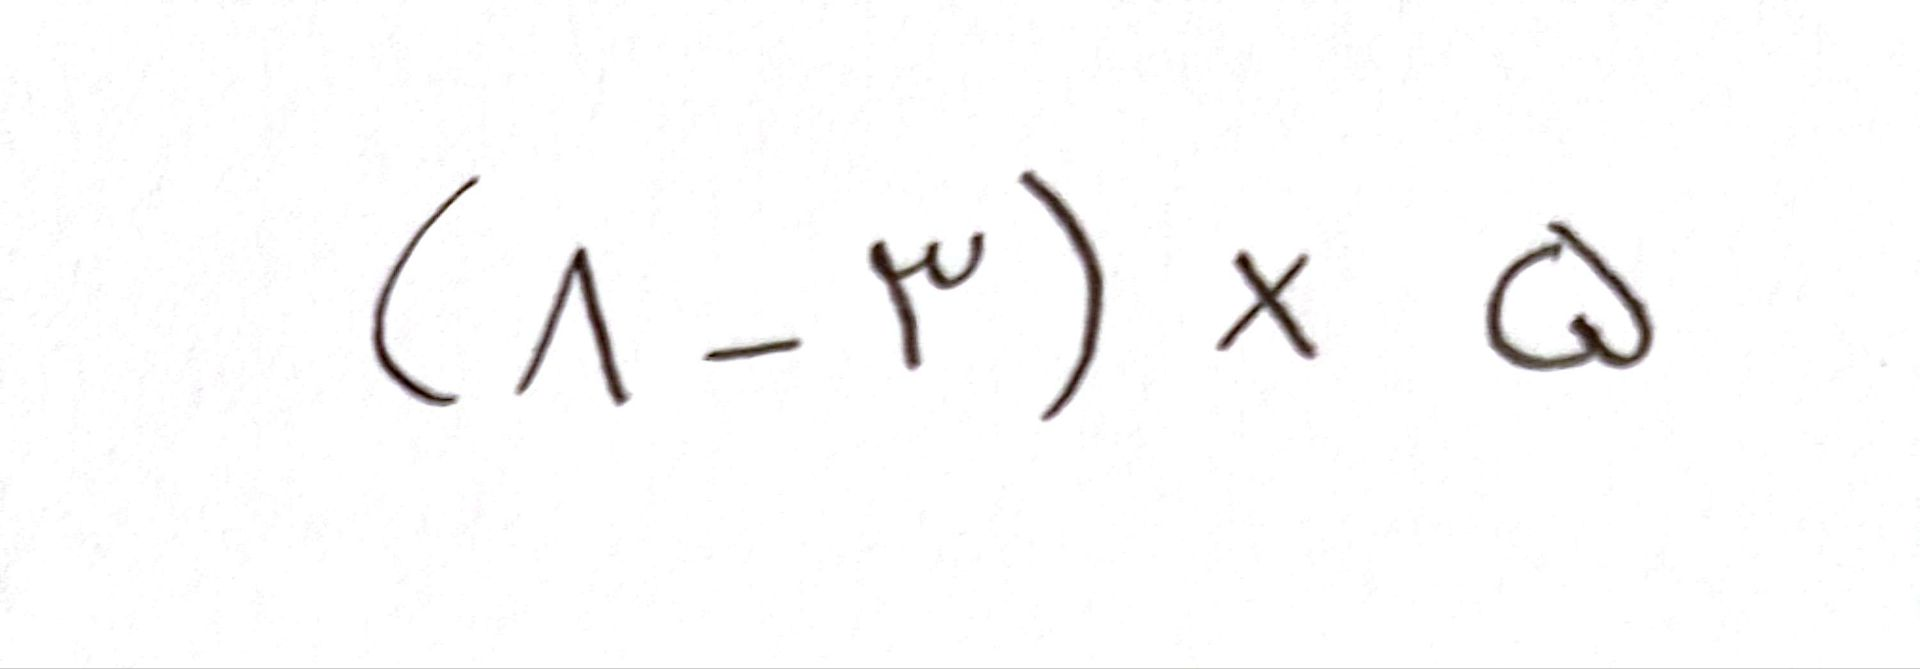 (۸ - ۳) × ۵